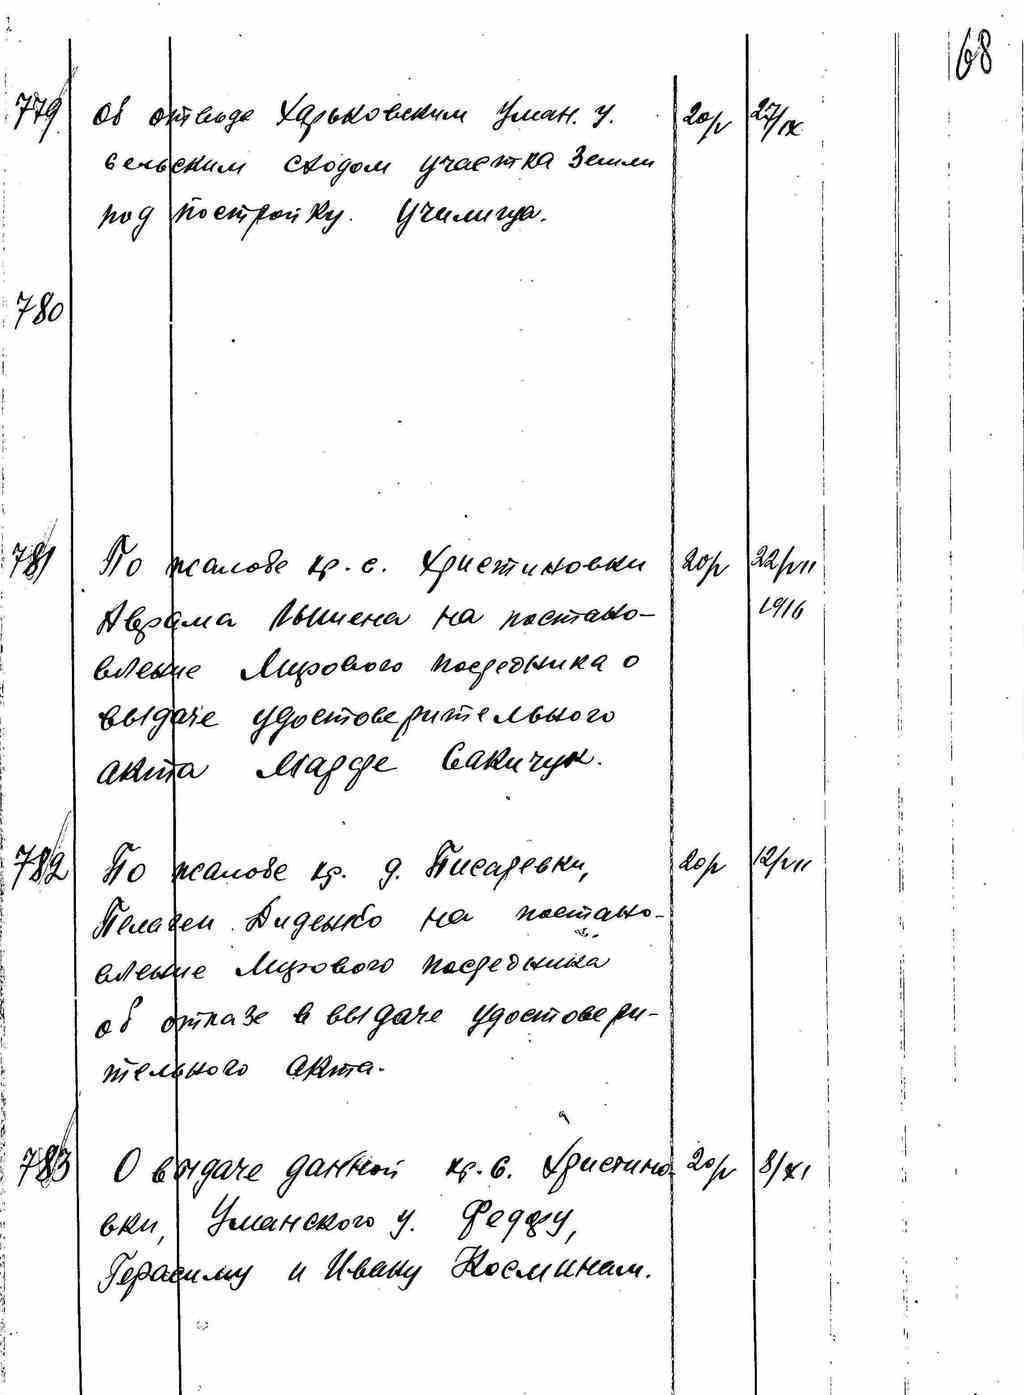 68
779 Об отводе Харьковским Уман. у. 20р 27/IX
сельским сходом участка земли
под постройку. Училища.
780
781 По жалобе кр. с. Христиновки 20р 22/VII
Аврама на постано- 1916
вление Мирового посредника о
выдаче удостоверительного
акта Марфе Савичук.
782 По жалобе кр. д. Писаревки, 20р 12/VII
Пелагеи Диденко на постано-
вление Мирового посредника
об отказе в выдаче удостовери-
тельного акта.
783 О выдаче данной кр. с. Христино- 20р 8/XI
вки, Уманского у. Федору,
Герасиму и Ивану Косминам.